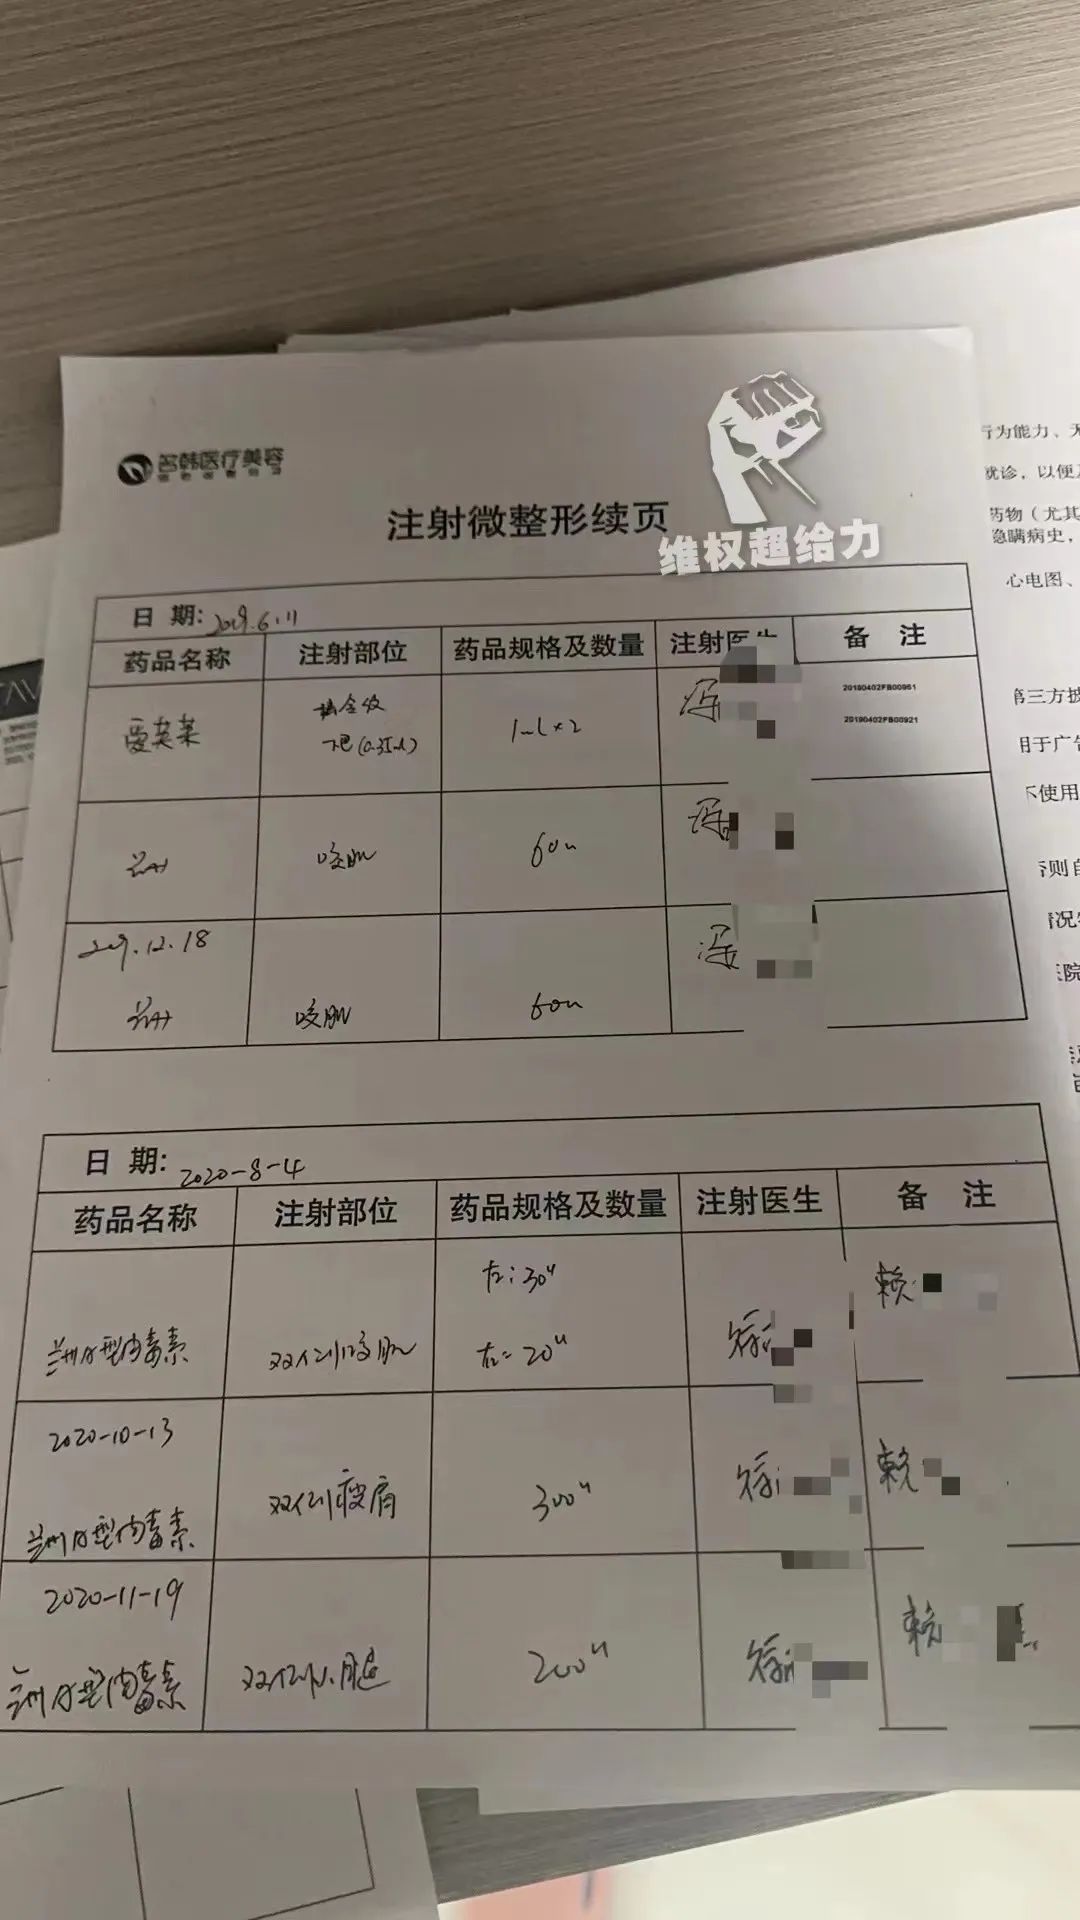 名韩医疗美容
注射微整形续页
维权超给力
日 期: 2019.6.11
药品名称 注射部位 药品规格及数量 注射医生 备 注
爱芙莱
下巴(0.35ml)
1ml×2
冯
20190402FB00961
20190402FB00921
咬肌 60u 冯
2019.12.18
咬肌 60u 冯
日 期: 2020-8-4
药品名称 注射部位 药品规格及数量 注射医生 备 注
:30u
兰州A型肉毒素 双侧咬肌
20u
赖
2020-10-13
兰州A型肉毒素 双侧瘦肩 300u 赖
2020-11-19
兰州A型肉毒素 双侧小腿 200u 赖
行为能力、无
就诊，以便
药物（尤其
隐瞒病史，
心电图、
第三方披
用于广告
不使用
否则自
情况
医院